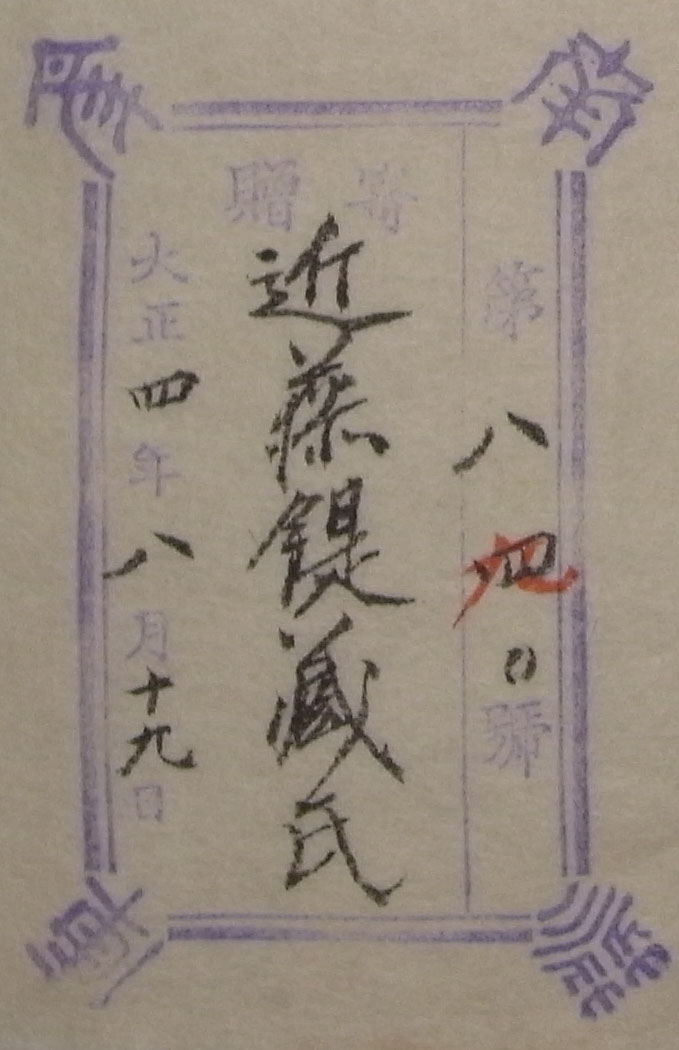 第八四〇號
寄贈
近藤鍉藏氏
大正四年八月十九日